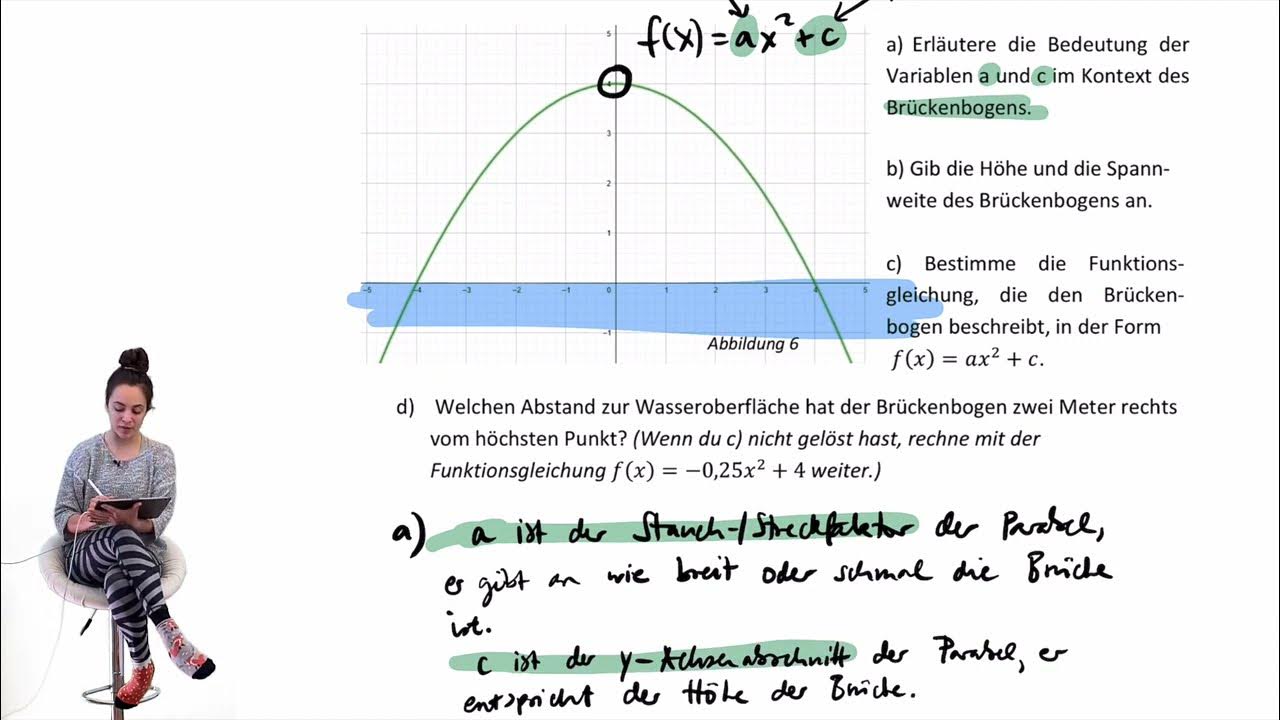 f(x) = ax² + c
a) Erläutere die Bedeutung der
Variablen a und c im Kontext des
Brückenbogens.
b) Gib die Höhe und die Spann-
weite des Brückenbogens an.
c) Bestimme die Funktions-
gleichung, die den Brücken-
bogen beschreibt, in der Form
f(x) = ax² + c.
5
4
3
2
1
-5 -4 -3 -2 -1 0 1 2 3 4 5
-1
Abbildung 6
d) Welchen Abstand zur Wasseroberfläche hat der Brückenbogen zwei Meter rechts
vom höchsten Punkt? (Wenn du c) nicht gelöst hast, rechne mit der
Funktionsgleichung f(x) = −0,25x² + 4 weiter.)
a) a ist der Stauch-/Streckfaktor der Parabel,
er gibt an wie breit oder schmal die Brücke
ist.
c ist der y-Achsenabschnitt der Parabel, er
entspricht der Höhe der Brücke.